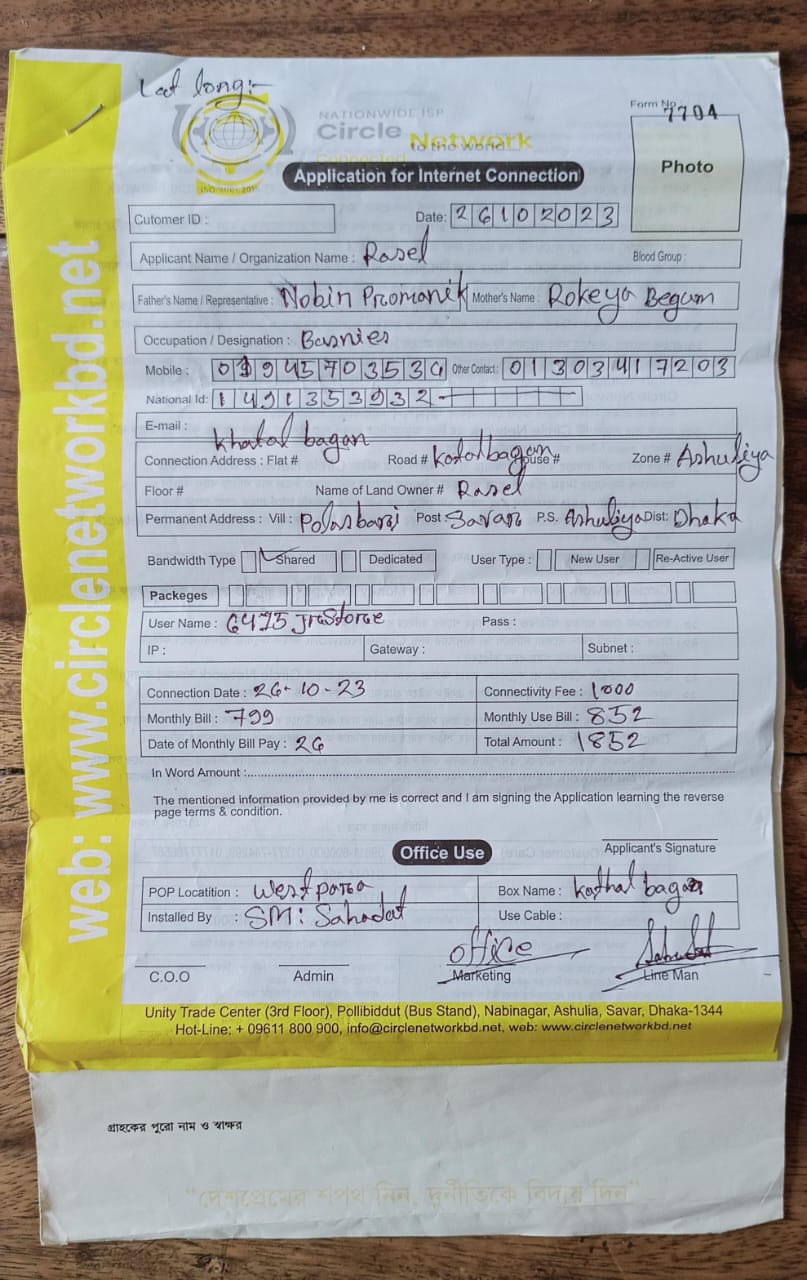 Lat long:-
NATIONWIDE ISP
Circle Network
to the world
Connected
ISO 9001:2015
Form No.
7704
Photo
Application for Internet Connection
Cutomer ID :
Date: 26102023
Applicant Name / Organization Name : Rasel Blood Group :
Father's Name / Representative : Nobin Promanik Mother's Name : Rokeya Begum
Occupation / Designation : Basnies
Mobile : Other Contact : 01303417203
National Id: 1491353932
E-mail :
Khatal bagan
Connection Address : Flat # Road # Katalbagan House # Zone # Ashuliya
Floor # Name of Land Owner # Rasel
Permanent Address : Vill : Polasbari Post : Savar P.S. Ashuliya Dist: Dhaka
Bandwidth Type Shared Dedicated User Type : New User Re-Active User
Packeges
User Name : Pass :
IP : Gateway : Subnet :
Connection Date : 26-10-23 Connectivity Fee : 1000
Monthly Bill : 799 Monthly Use Bill : 852
Date of Monthly Bill Pay : 26 Total Amount : 1852
In Word Amount :
The mentioned information provided by me is correct and I am signing the Application learning the reverse
page terms & condition.
Applicant's Signature
Office Use
POP Locatition : West para Box Name : Kathal bagan
Installed By : SM: Sahadat Use Cable :
office
C.O.O Admin Marketing Line Man
Unity Trade Center (3rd Floor), Pollibiddut (Bus Stand), Nabinagar, Ashulia, Savar, Dhaka-1344
Hot-Line: + 09611 800 900, info@circlenetworkbd.net, web: www.circlenetworkbd.net
web: www.circlenetworkbd.net
গ্রাহকের পুরো নাম ও স্বাক্ষর
“দেশপ্রেমের শপথ নিন, দুর্নীতিকে বিদায় দিন”